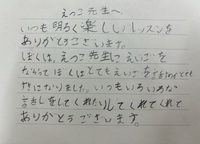 えつこ先生へ
いつも明るく楽しいレッスンを
ありがとうございます。
ぼくは、えつこ先生にえいごを
ならってぼくはとてもえいごを
きになりました。いつもいろいろな
お話しをしてくれたりしてくれてくれて
ありがとうございます。